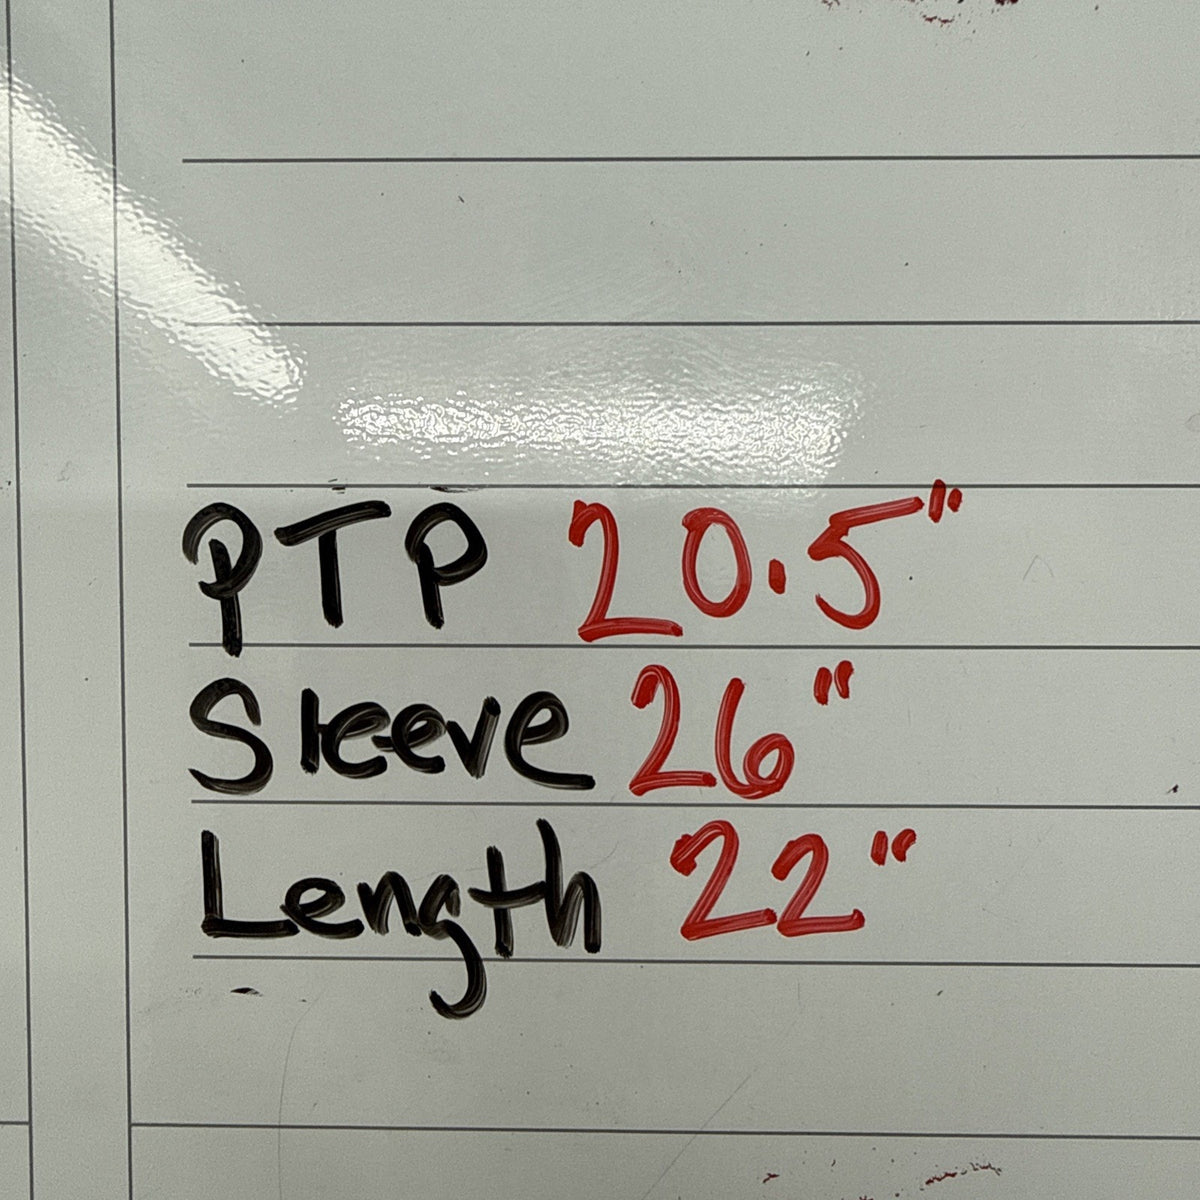 PTP 20.5"
Sleeve 26"
Length 22"